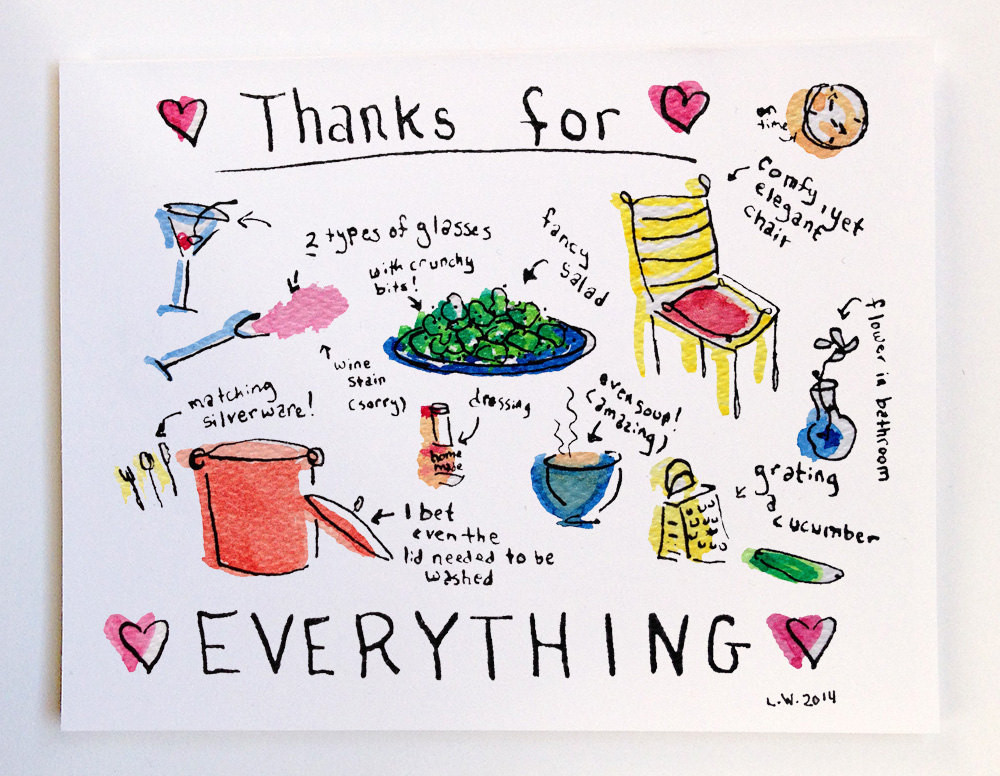 Thanks for
on
time
comfy, yet
elegant
chair
2 types of glasses
with crunchy
bits!
fancy
salad
flower in bathroom
wine
stain
(sorry)
matching
silverware!
dressing
home
made
even soup!
(amazing)
grating
a
cucumber
I bet
even the
lid needed to be
washed
EVERYTHING
L.W. 2014